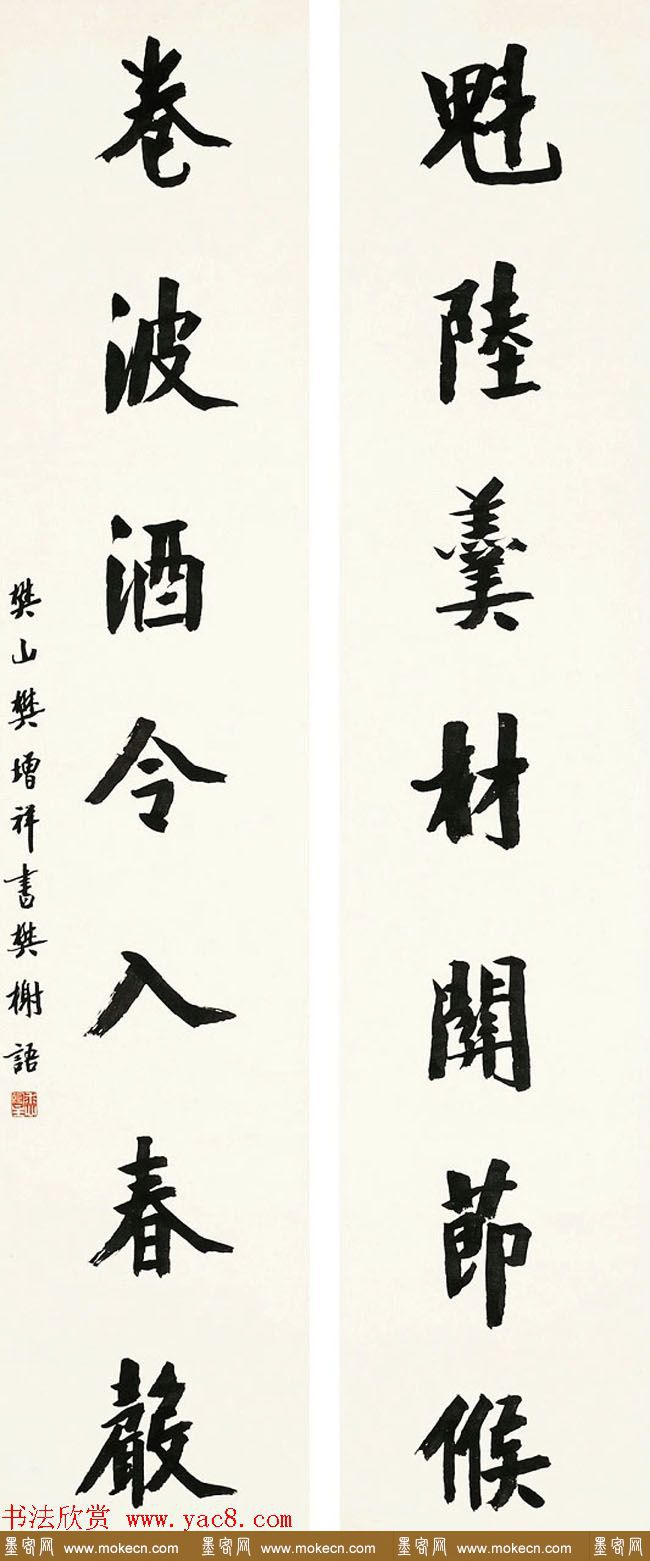 魁陸羹材關節候
卷波酒令入春聲
樊山樊增祥書樊榭語
书法欣赏 www.yac8.com
墨客网 www.mokecn.com 墨客网 www.mokecn.com 墨客网 www.mokecn.com 墨客网